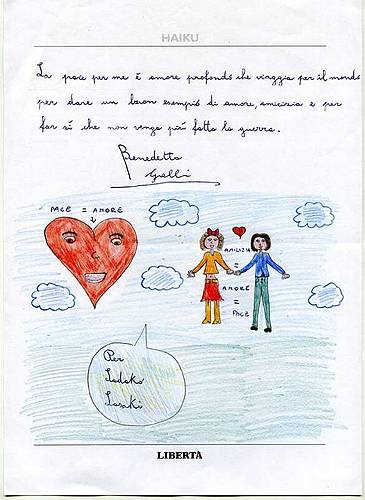 HAIKU
La pace per me è amore profondo che viaggia per il mondo
per dare un buon esempio di amore, amicizia e per
far sì che non venga più fatta la guerra.
Benedetta
Galli
PACE = AMORE
AMICIZIA
=
AMORE
=
PACE
Per
Sadako
Sasaki
LIBERTÀ